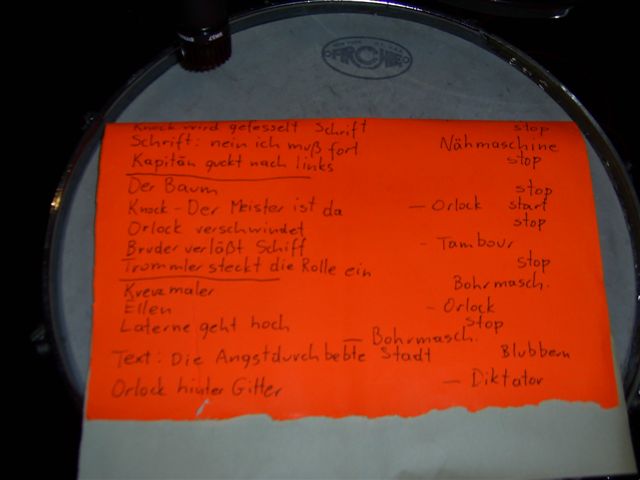 Knock wird gefesselt Schrift stop
Schrift: nein ich muß fort Nähmaschine
Kapitän guckt nach links stop
Der Baum stop
Knock - Der Meister ist da — Orlock start
Orlock verschwindet stop
Bruder verläßt Schiff - Tambour
Trommler steckt die Rolle ein stop
Kreuzmaler Bohrmasch.
Ellen - Orlock
Laterne geht hoch stop
— Bohrmasch.
Text: Die Angstdurchbebte Stadt Blubbern
Orlock hinter Gitter — Diktator